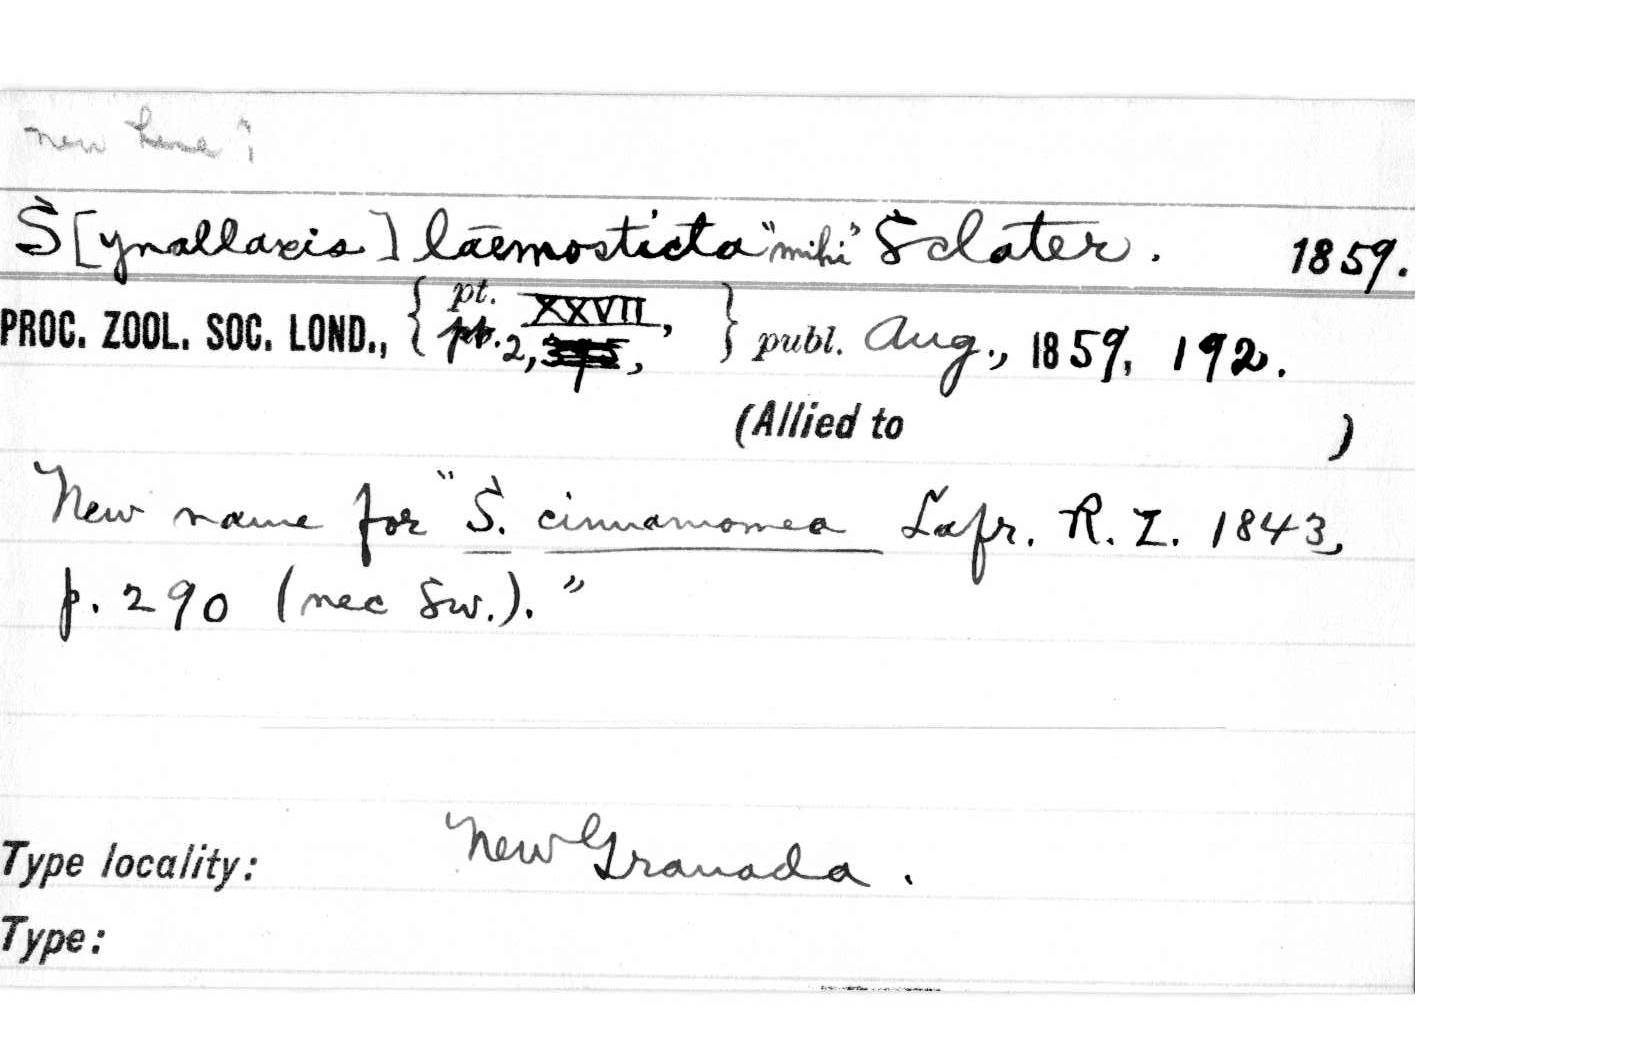 new here?
S[ynallaxis] laemosticta "mihi" Sclater. 1859.
PROC. ZOOL. SOC. LOND., { pt. XXVII, pt. 2, } publ. Aug., 1859, 192.
(Allied to )
New name for "S. cinnamomea Lafr. R. Z. 1843,
p. 290 (nec Sw.)."
Type locality: New Granada.
Type: